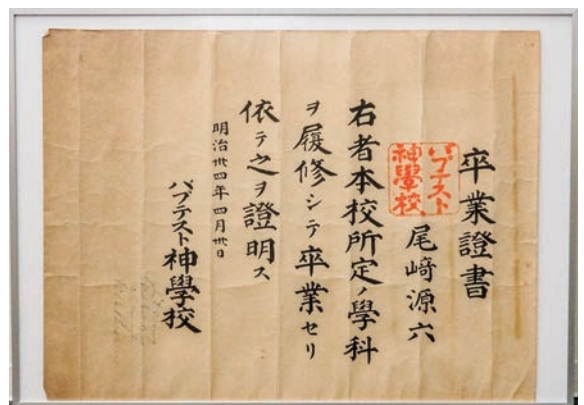 卒業證書
バプテスト
神學校
尾﨑源六
右者本校所定ノ學科
ヲ履修シテ卒業セリ
依テ之ヲ證明ス
明治卅四年四月卅日
バプテスト神學校